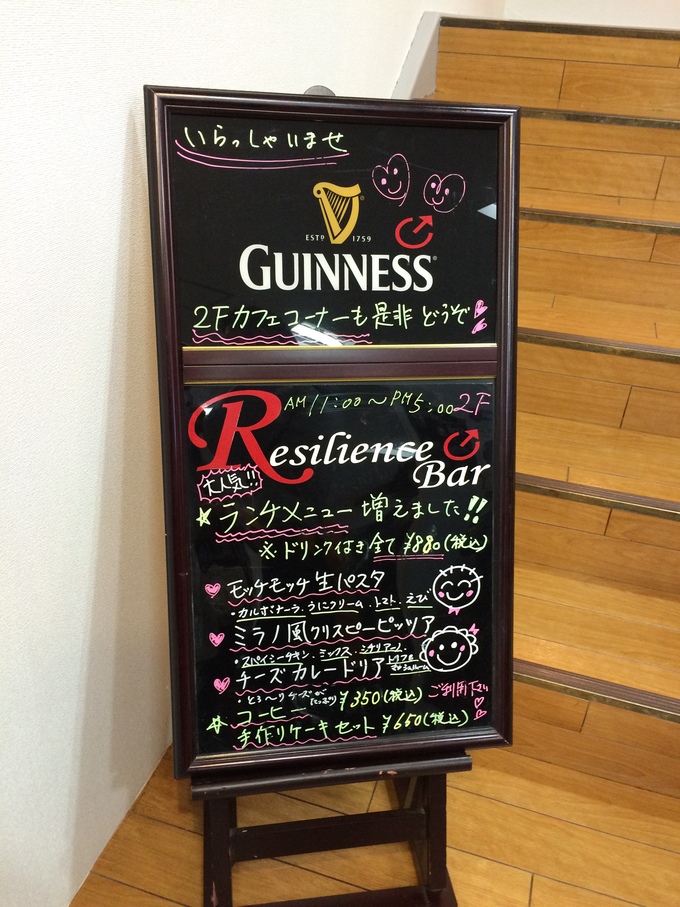 いらっしゃいませ
ESTD 1759
GUINNESS
2Fカフェコーナーも是非どうぞ
AM11:00〜PM5:00 2F
Resilience
Bar
大人気!!
ランチメニュー増えました!!
※ドリンク付き全て¥880(税込)
モッチモッチ生パスタ
・カルボナーラ、うにクリーム、トマト、えび
ミラノ風クリスピーピッツァ
・スパイシーチキン、ミックス、シチリアーノ
チーズカレードリア
・とろ〜りチーズが
コーヒー ¥350(税込) ご利用下さい
手作りケーキセット ¥650(税込)